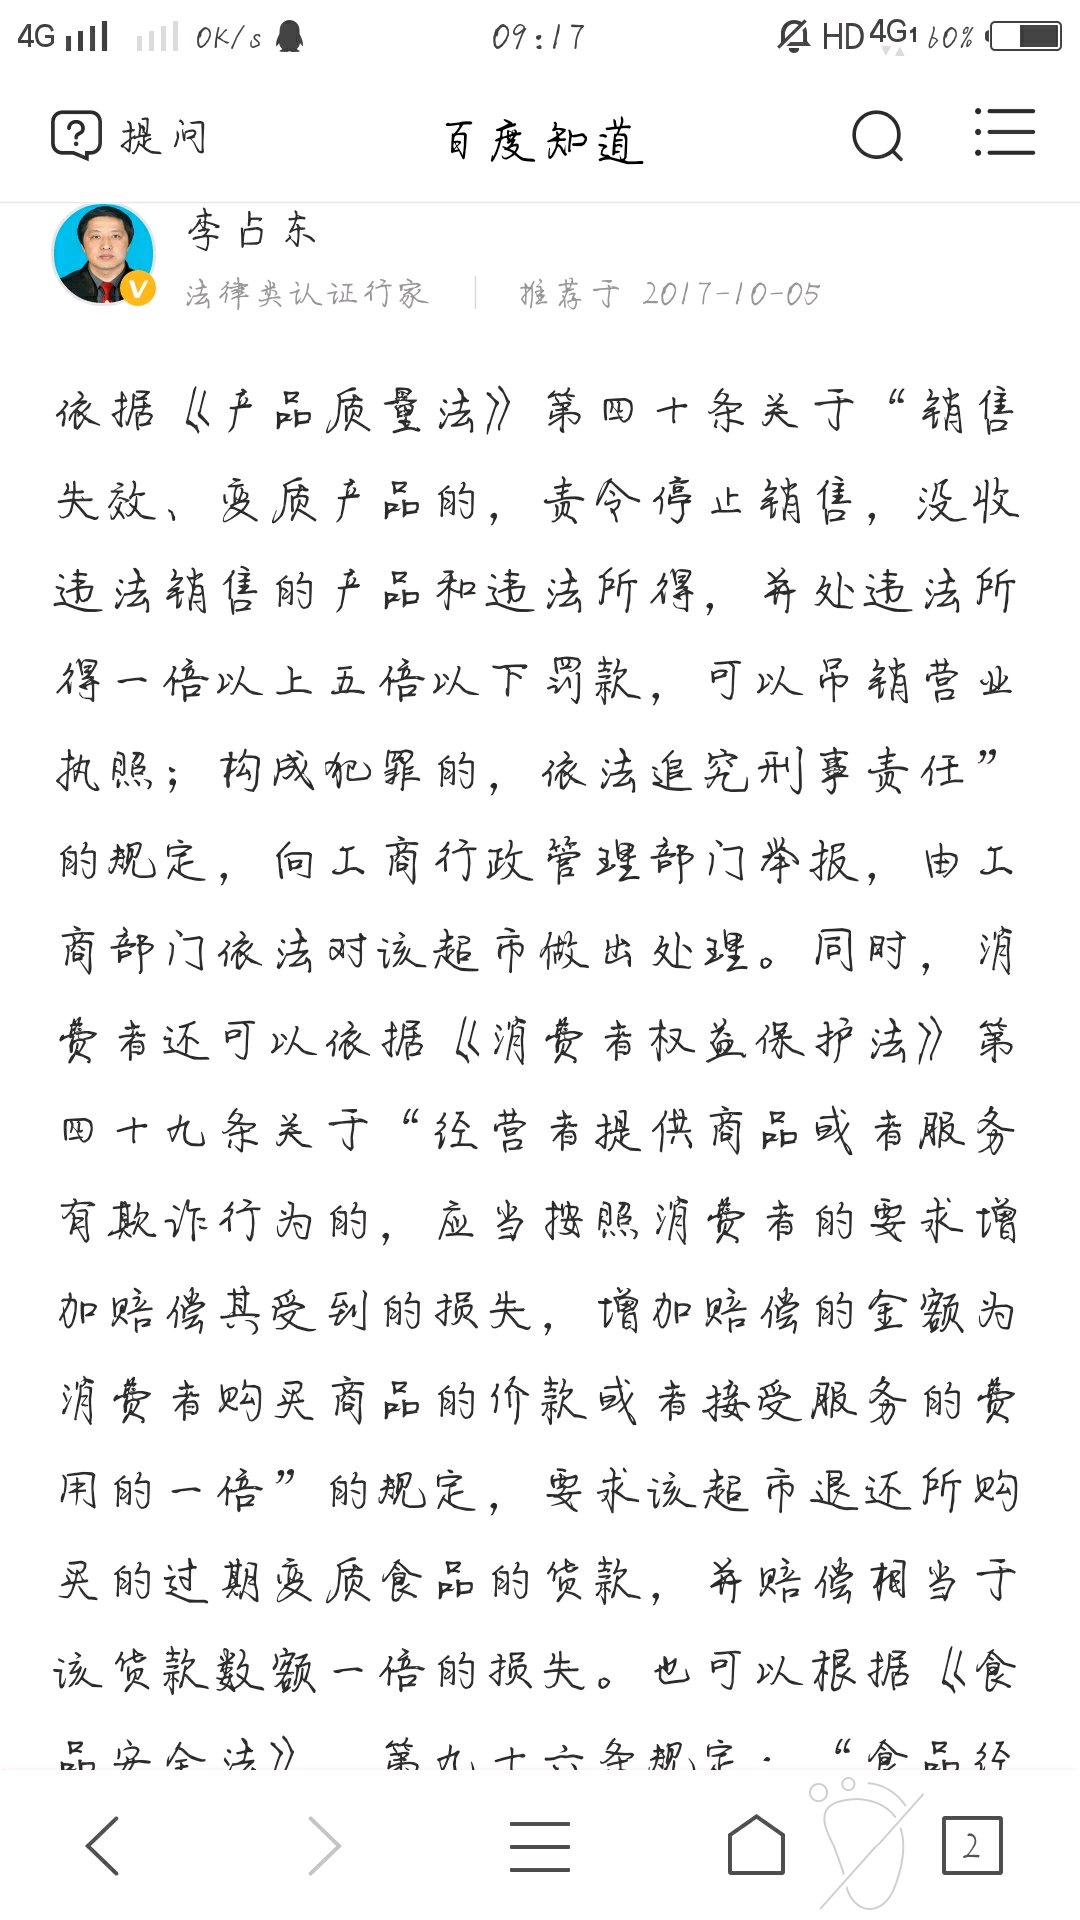 4G 0K/s 09:17 HD 4G1 60%
提问 百度知道
李占东
法律类认证行家 推荐于 2017-10-05
依据《产品质量法》第四十条关于“销售
失效、变质产品的，责令停止销售，没收
违法销售的产品和违法所得，并处违法所
得一倍以上五倍以下罚款，可以吊销营业
执照；构成犯罪的，依法追究刑事责任”
的规定，向工商行政管理部门举报，由工
商部门依法对该超市做出处理。同时，消
费者还可以依据《消费者权益保护法》第
四十九条关于“经营者提供商品或者服务
有欺诈行为的，应当按照消费者的要求增
加赔偿其受到的损失，增加赔偿的金额为
消费者购买商品的价款或者接受服务的费
用的一倍”的规定，要求该超市退还所购
买的过期变质食品的货款，并赔偿相当于
该货款数额一倍的损失。也可以根据《食
品安全法》 第九十六条规定：“食品经
2